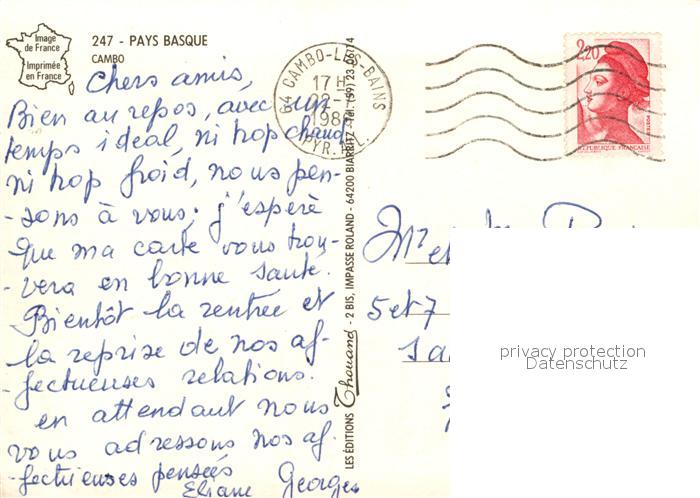 Image
de France
Imprimée
en France
247 - PAYS BASQUE
CAMBO
64 CAMBO-LES-BAINS
17 H
PYR.
2,20
POSTES
REPUBLIQUE FRANÇAISE
Chers amis,
Bien au repos, avec un
temps ideal, ni trop chaud
ni trop froid, nous pen-
-sons à vous; j'espère
que ma carte vous trou-
-vera en bonne santé.
Bientôt la rentrée et
la reprise de nos af-
-fectueuses relations.
en attendant nous
vous adressons nos af-
-fectueuses pensées
Eliane Georges
LES ÉDITIONS Thouand - 2 BIS, IMPASSE ROLAND - 64200 BIARRITZ - Tél. (59) 23
Mr et
5 et 7
privacy protection
Datenschutz